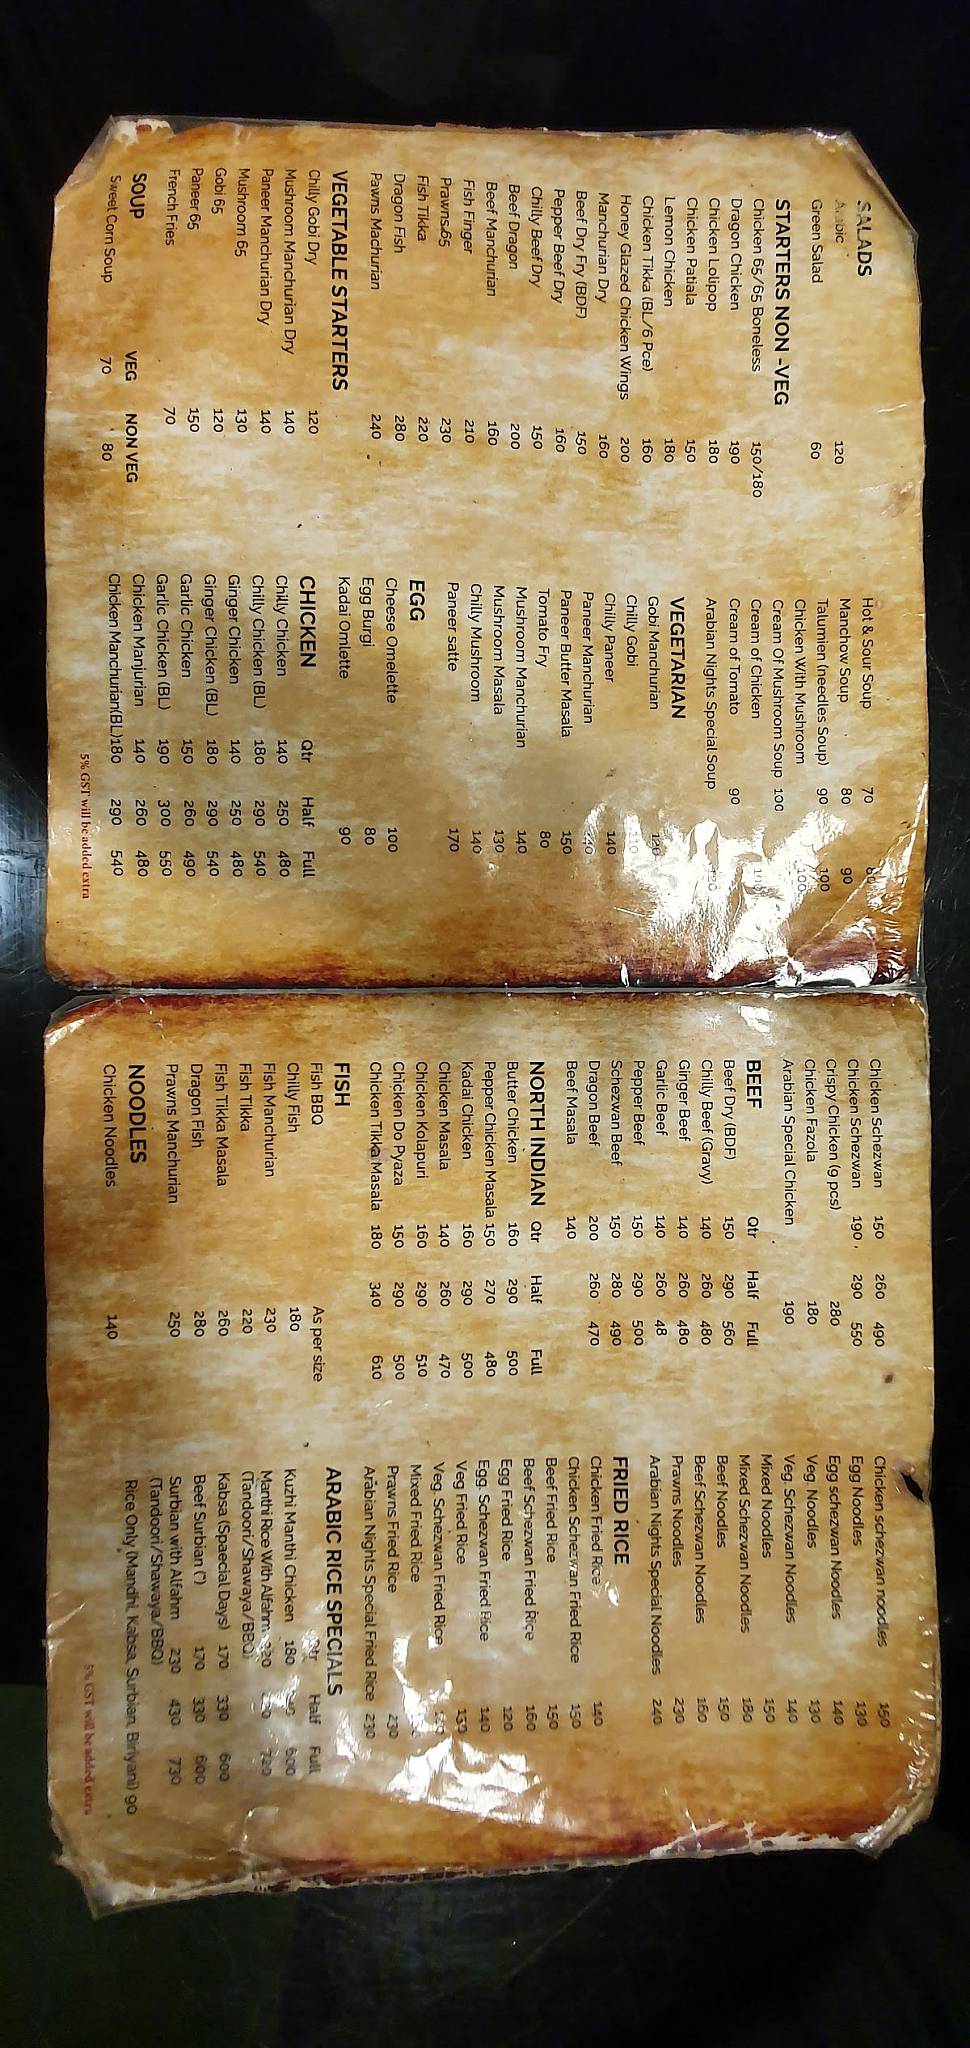 SALADS
Arabic 120
Green Salad 60
STARTERS NON -VEG
Chicken 65/65 Boneless 150/180
Dragon Chicken 190
Chicken Lolipop 180
Chicken Patiala 150
Lemon Chicken 180
Chicken Tikka (BL/6 Pce) 160
Honey Glazed Chicken Wings 200
Manchurian Dry 160
Beef Dry Fry (BDF) 150
Pepper Beef Dry 160
Chilly Beef Dry 150
Beef Dragon 200
Beef Manchurian 160
Fish Finger 210
Prawns 65 230
Fish Tikka 220
Dragon Fish 280
Pawns Machurian 240
VEGETABLE STARTERS
Chilly Gobi Dry 120
Mushroom Manchurian Dry 140
Paneer Manchurian Dry 140
Mushroom 65 130
Gobi 65 120
Paneer 65 150
French Fries 70
SOUP VEG NON VEG
Sweet Corn Soup 70 80
Hot & Sour Soup 70 80
Manchow Soup 80 90
Talumien (needles Soup) 90 100
Chicken With Mushroom 100
Cream Of Mushroom Soup 100
Cream of Chicken
Cream of Tomato 90
Arabian Nights Special Soup
VEGETARIAN
Gobi Manchurian 120
Chilly Gobi 110
Chilly Paneer 140
Paneer Manchurian 140
Paneer Butter Masala 150
Tomato Fry 80
Mushroom Manchurian 140
Mushroom Masala 130
Chilly Mushroom 140
Paneer satte 170
EGG
Cheese Omelette 100
Egg Burgi 80
Kadai Omlette 90
CHICKEN Qtr Half Full
Chilly Chicken 140 250 480
Chilly Chicken (BL) 180 290 540
Ginger Chicken 140 250 480
Ginger Chicken (BL) 180 290 540
Garlic Chicken 150 260 490
Garlic Chicken (BL) 190 300 550
Chicken Manjurian 140 260 480
Chicken Manchurian(BL)180 290 540
5% GST will be added extra
Chicken Schezwan 150 260 490
Chicken Schezwan 190 290 550
Crispy Chicken (9 pcs) 280
Chicken Fazola 180
Arabian Special Chicken 190
BEEF Qtr Half Full
Beef Dry (BDF) 150 290 560
Chilly Beef (Gravy) 140 260 480
Ginger Beef 140 260 480
Garlic Beef 140 260 48
Pepper Beef 150 290 500
Schezwan Beef 150 280 490
Dragon Beef 200 260 470
Beef Masala 140
NORTH INDIAN Qtr Half Full
Butter Chicken 160 290 500
Pepper Chicken Masala 150 270 480
Kadai Chicken 160 290 500
Chicken Masala 140 260 470
Chicken Kolapuri 160 290 510
Chicken Do Pyaza 150 290 500
Chicken Tikka Masala 180 340 610
FISH
Fish BBQ As per size
Chilly Fish 180
Fish Manchurian 230
Fish Tikka 220
Fish Tikka Masala 260
Dragon Fish 280
Prawns Manchurian 250
NOODLES
Chicken Noodles 140
Chicken schezwan noodles 150
Egg Noodles 130
Egg schezwan Noodles 140
Veg. Noodles 130
Veg. Schezwan Noodles 140
Mixed Noodles 150
Mixed Schezwan Noodles 180
Beef Noodles 150
Beef Schezwan Noodles 160
Prawns Noodles 230
Arabian Nights Special Noodles 240
FRIED RICE
Chicken Fried Rice 140
Chicken Schezwan Fried Rice 150
Beef Fried Rice 150
Beef Schezwan Fried Rice 160
Egg Fried Rice 120
Egg. Schezwan Fried Rice 140
Veg Fried Rice 130
Veg. Schezwan Fried Rice
Mixed Fried Rice
Prawns Fried Rice 230
Arabian Nights Special Fried Rice 230
ARABIC RICE SPECIALS Qtr Half Full
Kuzhi Manthi Chicken 180 600
Manthi Rice With Alfahm 720
(Tandoori/Shawaya/BBQ)
Kabsa (Spaecial Days) 170 330 600
Beef Surbian (") 170 330 600
Surbian with Alfahm 230 430 730
(Tandoori/Shawaya/BBQ)
Rice Only (Mandhi, Kabsa, Surbian, Biriyani) 90
5% GST will be added extra